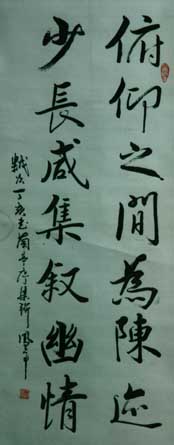 俯仰之間為陳迹
少長咸集叙幽情
歲次丁亥書蘭亭序集聯